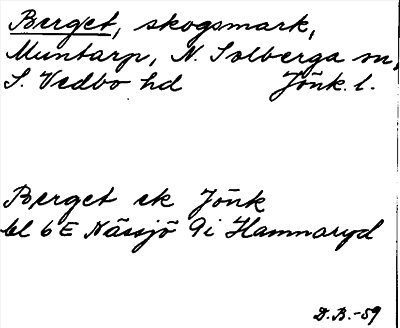 Berget, skogsmark,
Muntarp, N. Solberga sn,
S. Vedbo hd Jönk. l.
Berget ek Jönk
bl 6E Nässjö 9i Hamnaryd
D.B.-59